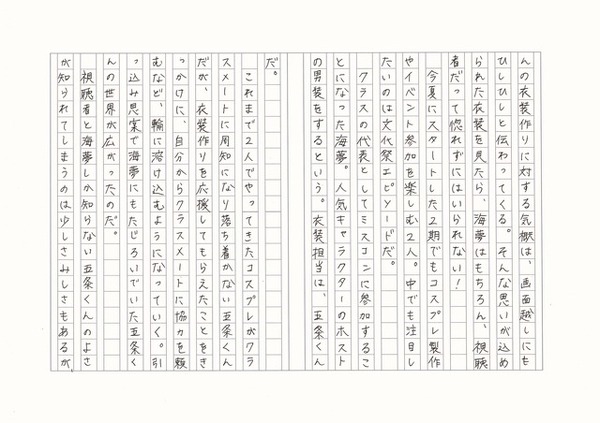 んの衣装作りに対する気概は、画面越しにも
ひしひしと伝わってくる。そんな思いが込め
られた衣装を見たら、海夢はもちろん、視聴
者だって惚れずにはいられない！
　今夏にスタートした2期でもコスプレ製作
やイベント参加を楽しむ2人。中でも注目し
たいのは文化祭エピソードだ。
　クラスの代表としてミスコンに参加するこ
とになった海夢。人気キャラクターのホスト
の男装をするという。衣装担当は、五条くん
だ。
　これまで2人でやってきたコスプレがクラ
スメートに周知になり落ち着かない五条くん
だが、衣装作りを応援してもらえたことをき
っかけに、自分からクラスメートに協力を頼
むなど、輪に溶け込むようになっていく。引
っ込み思案で海夢にもたじろいでいた五条く
んの世界が広がったのだ。
　視聴者と海夢しか知らない五条くんのよさ
が知られてしまうのは少しさみしさもあるが、